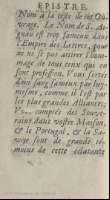 EPISTRE.
Nom à la teste de cet Ou-
vrage. Le Nom de S. Ai-
gnan est trop fameux dans
l'Empire des Lettres, pour
ne pas attirer l'hom-
mage de tous ceux qui en
font profession. Vous sortez
d'un sang fameux par luy-
mesme, comme il l'est par
les plus grandes Alliances;
comptés des Souve-
rains dans vostre Maison,
& le Portugal, & la Sa-
voye sont de grands té-
moins de cette éclatante